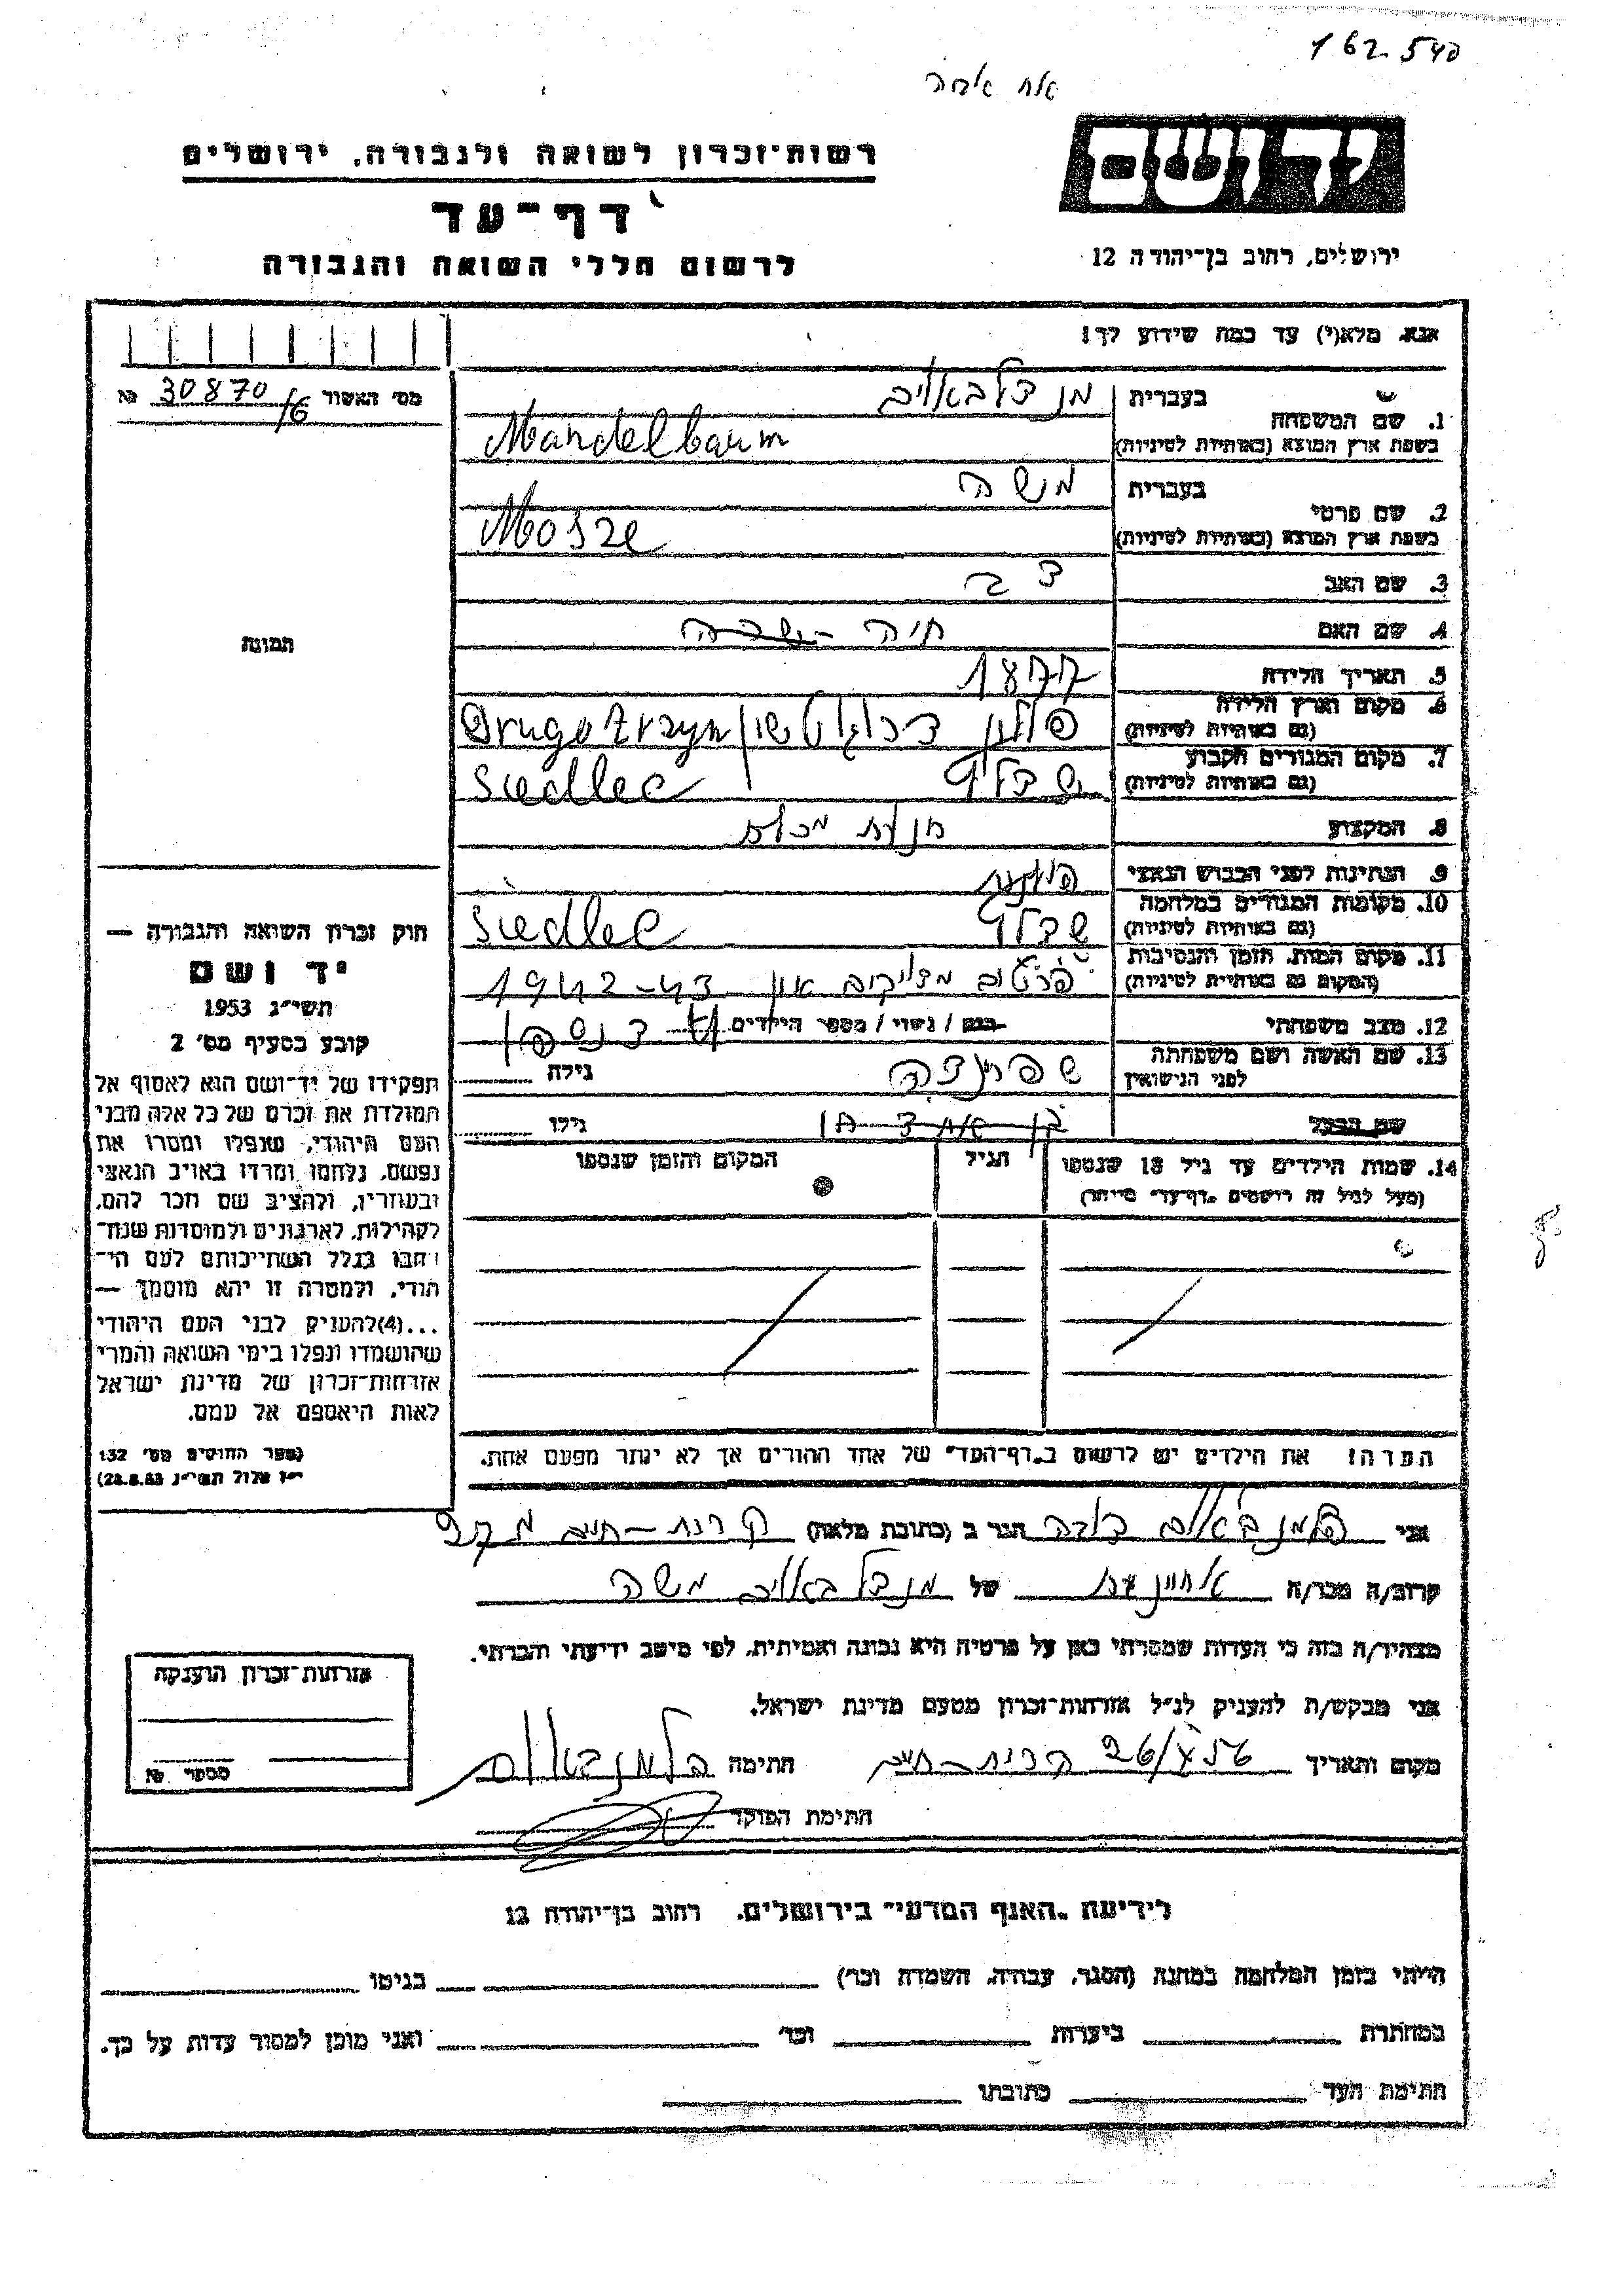 162.540
יד ושם
ירושלים, רחוב בן־יהודה 12
רשות־זכרון לשואה ולגבורה, ירושלים
דף־עד
לרשום חללי השואה והגבורה
אנא, מלא(י) עד כמה שידוע לך!
מס׳ האשור 30870/6 №
תמונה
1. שם המשפחה
בעברית מנדלבאום
בשפת ארץ המוצא (באותיות לטיניות) Mandelbaum
2. שם פרטי
בעברית משה
בשפת ארץ המוצא (באותיות לטיניות) Mosze
3. שם האב
4. שם האם חיה
5. תאריך הלידה 1877
6. מקום וארץ הלידה (גם באותיות לטיניות) פולין
7. מקום המגורים הקבוע (גם באותיות לטיניות) שדלץ Siedlec
8. המקצוע חנות מכולת
9. הנתינות לפני הכבוש הנאצי פולנית
10. מקומות המגורים במלחמה (גם באותיות לטיניות) שדלץ Siedlec
11. מקום המות, הזמן והנסיבות (המקום גם באותיות לטיניות) 1942-43
12. מצב משפחתי רווק / נשוי / מספר הילדים
13. שם האשה ושם משפחתה לפני הנישואין שפרינצה גילה
שם הבעל גילו
14. שמות הילדים עד גיל 18 שנספו הגיל המקום והזמן שנספו
(מעל לגיל זה רושמים „דף־עד״ מיוחד)
הערה! את הילדים יש לרשום ב„דף־העד״ של אחד ההורים אך לא יותר מפעם אחת.
חוק זכרון השואה והגבורה —
יד ושם
תשי״ג 1953
קובע בסעיף מס׳ 2
תפקידו של יד־ושם הוא לאסוף אל
המולדת את זכרם של כל אלה מבני
העם היהודי, שנפלו ומסרו את
נפשם, נלחמו ומרדו באויב הנאצי
ובעוזריו, ולהציב שם וזכר להם,
לקהילות, לארגונים ולמוסדות שנח־
רבו בגלל השתייכותם לעם הי־
הודי, ולמטרה זו יהא מוסמך —
...(4)להעניק לבני העם היהודי
שהושמדו ונפלו בימי השואה והמרי
אזרחות־זכרון של מדינת ישראל
לאות היאספם אל עמם.
(ספר החוקים מס׳ 132
י״ז אלול תשי״ג 28.8.53)
אני הגר ב (כתובת מלאה) קרית-חיים
קרוב/ה מכר/ה של מנדלבאום משה
מצהיר/ה בזה כי העדות שמסרתי כאן על פרטיה היא נכונה ואמיתית, לפי מיטב ידיעתי והכרתי.
אני מבקש/ת להעניק לנ״ל אזרחות־זכרון מטעם מדינת ישראל.
מקום ותאריך קרית-חיים 26/X 56 חתימה
חתימת הפוקד
אזרחות־זכרון הוענקה
מספר №
לידיעת „האגף המדעי״ בירושלים, רחוב בן־יהודה 12
הייתי בזמן המלחמה במחנה (הסגר, עבודה, השמדה וכו׳) בגיטו
במחתרת ביערות וכו׳ ואני מוכן למסור עדות על כך.
חתימת העד כתובתו